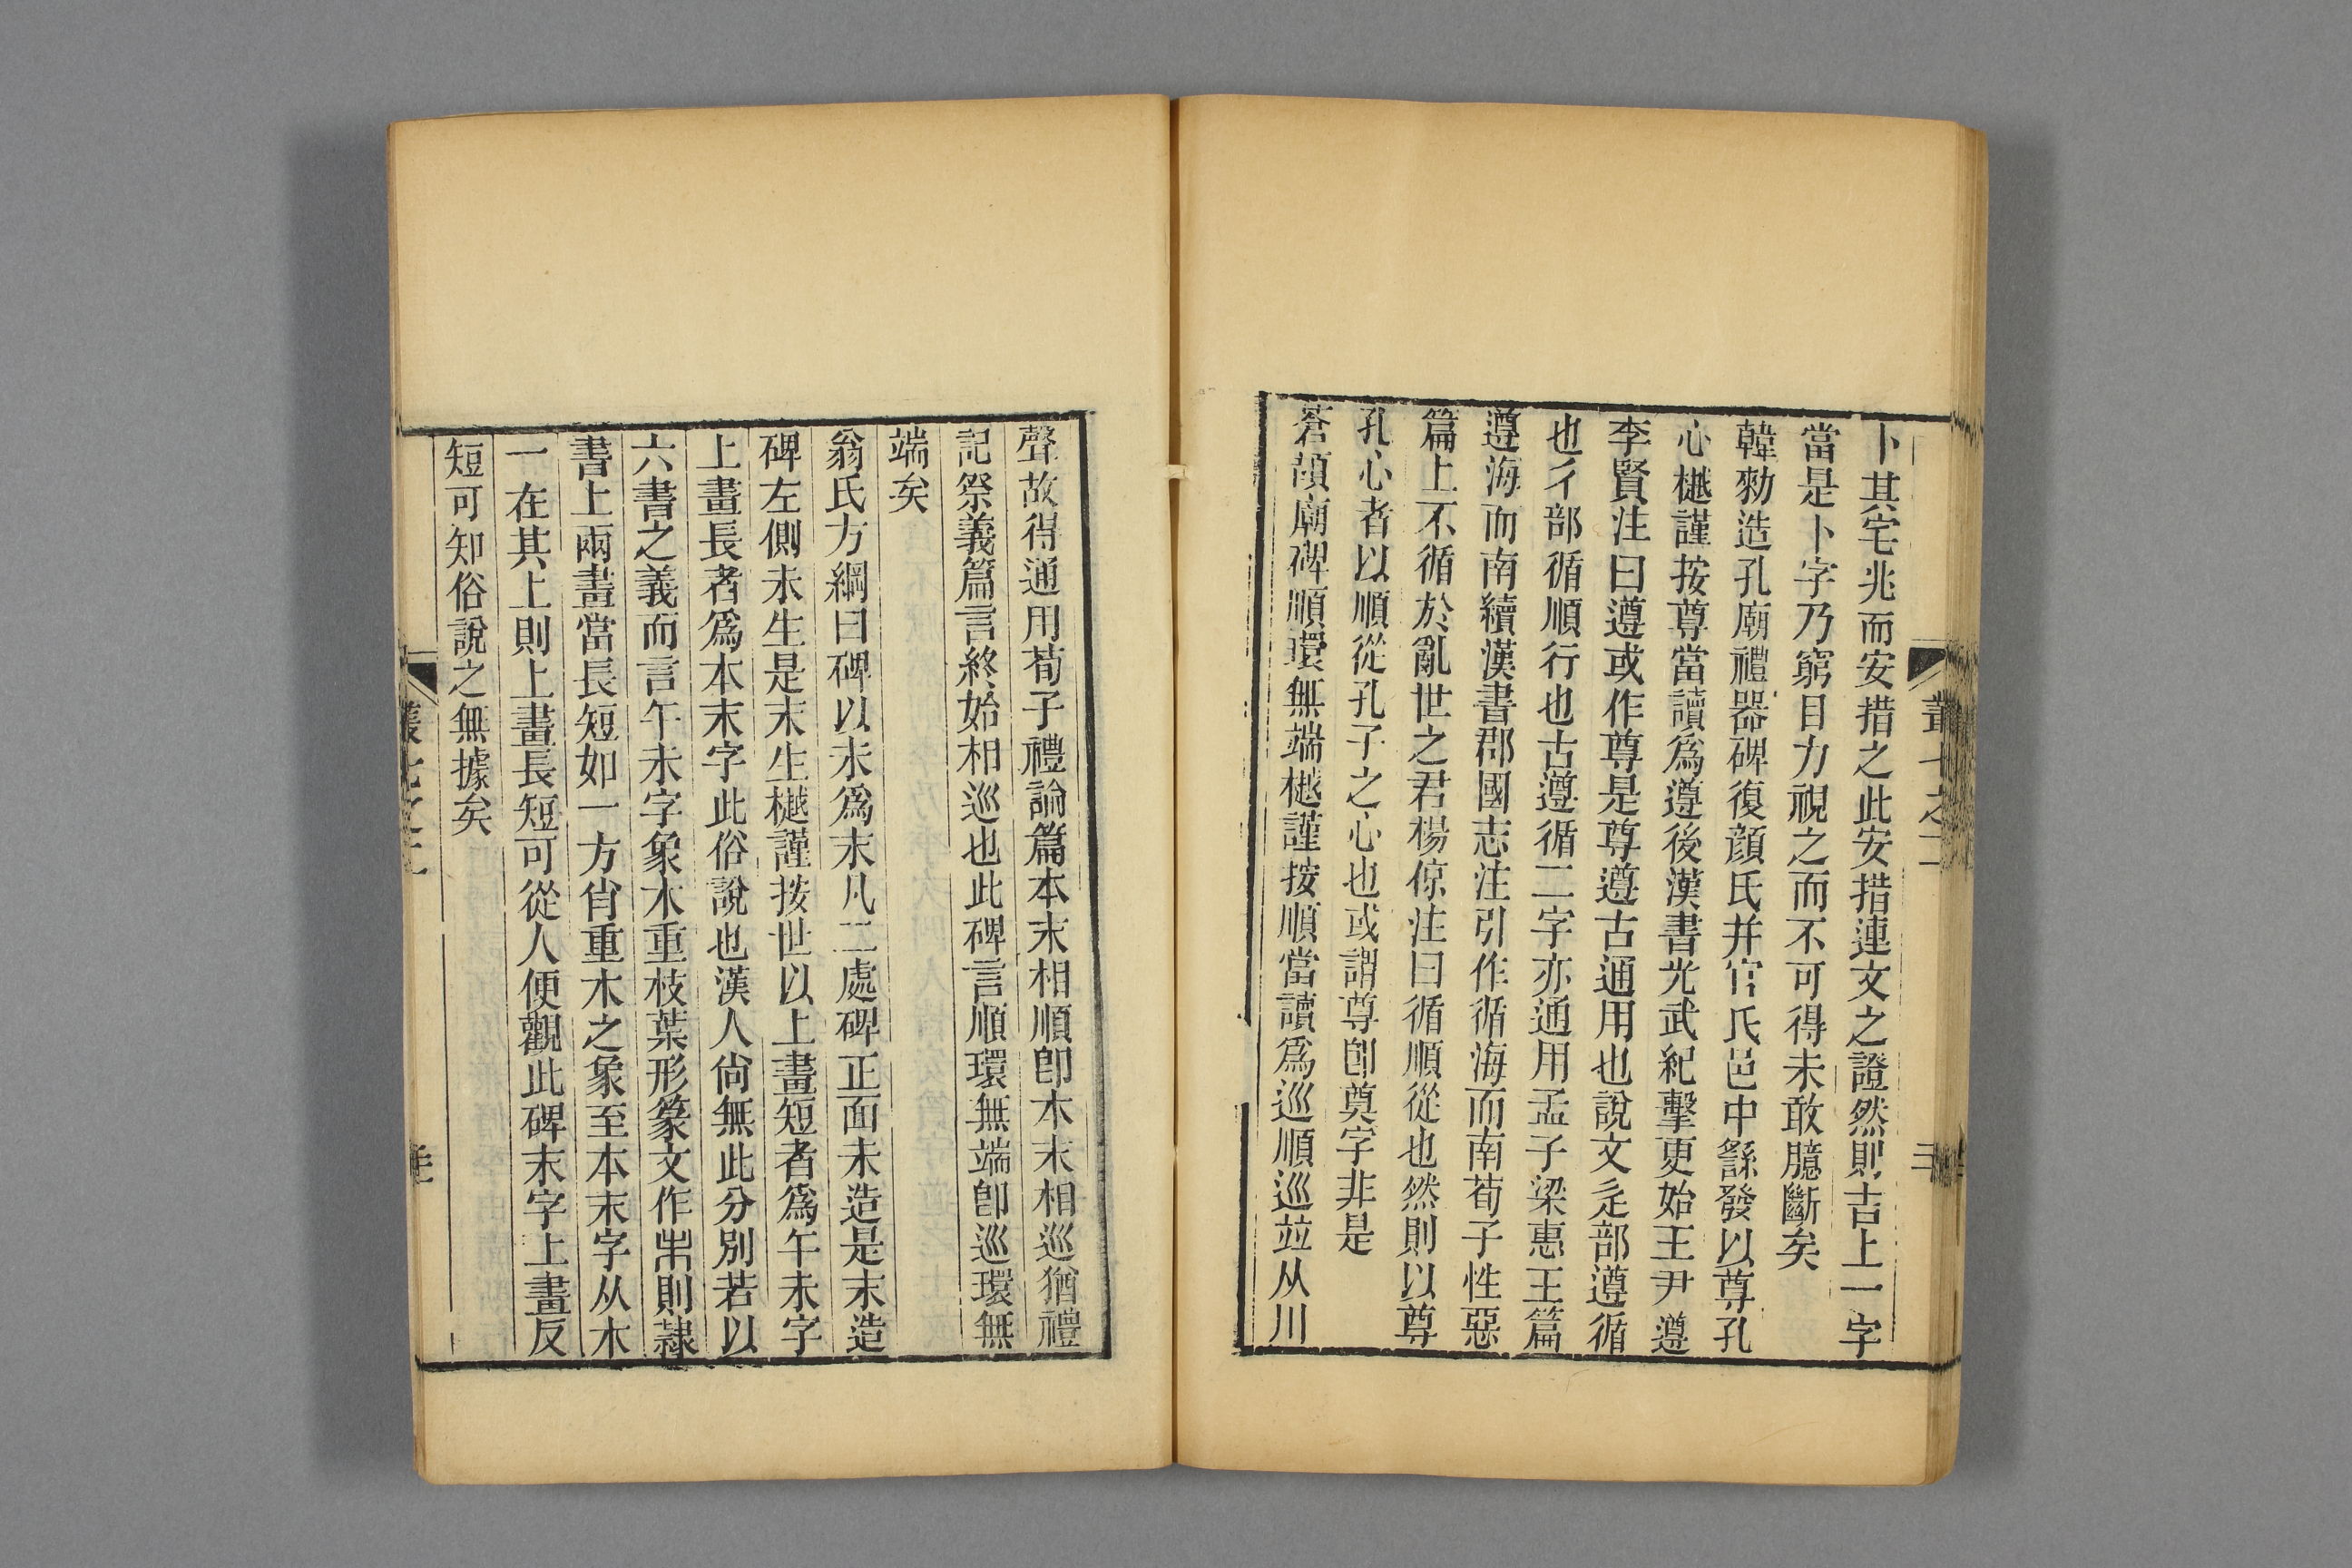 卜其宅兆而安措之此安措連文之證然則吉上一字
當是卜字乃窮目力視之而不可得未敢臆斷矣
韓勑造孔廟禮器碑復顏氏并官氏邑中繇發以尊孔
心樾謹按尊當讀爲遵後漢書光武紀擊更始王尹遵
李賢注曰遵或作尊是尊遵古通用也說文辵部遵循
也彳部循順行也古遵循二字亦通用孟子梁惠王篇
遵海而南續漢書郡國志注引作循海而南荀子性惡
篇上不循於亂世之君楊倞注曰循順從也然則以尊
孔心者以順從孔子之心也或謂尊卽奠字非是
蒼頡廟碑順環無端樾謹按順當讀爲巡順巡竝从川
聲故得通用荀子禮論篇本末相順卽本末相巡猶禮
記祭義篇言終始相巡也此碑言順環無端卽巡環無
端矣
翁氏方綱曰碑以未爲末凡二處碑正面未造是末造
碑左側未生是末生樾謹按世以上畫短者爲午未字
上畫長者爲本末字此俗說也漢人尙無此分別若以
六書之義而言午未字象木重枝葉形篆文作𣎵則隸
書上兩畫當長短如一方肖重木之象至本末字从木
一在其上則上畫長短可從人便觀此碑末字上畫反
短可知俗說之無據矣